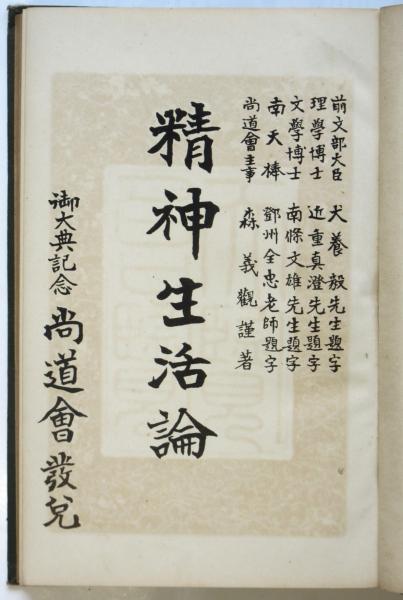 前文部大臣 犬養毅先生題字
理學博士 近重真澄先生題字
文學博士 南條文雄先生題字
南天棒 鄧州全忠老師題字
尚道會主事 森義觀謹著
精神生活論
御大典記念 尚道會發兌